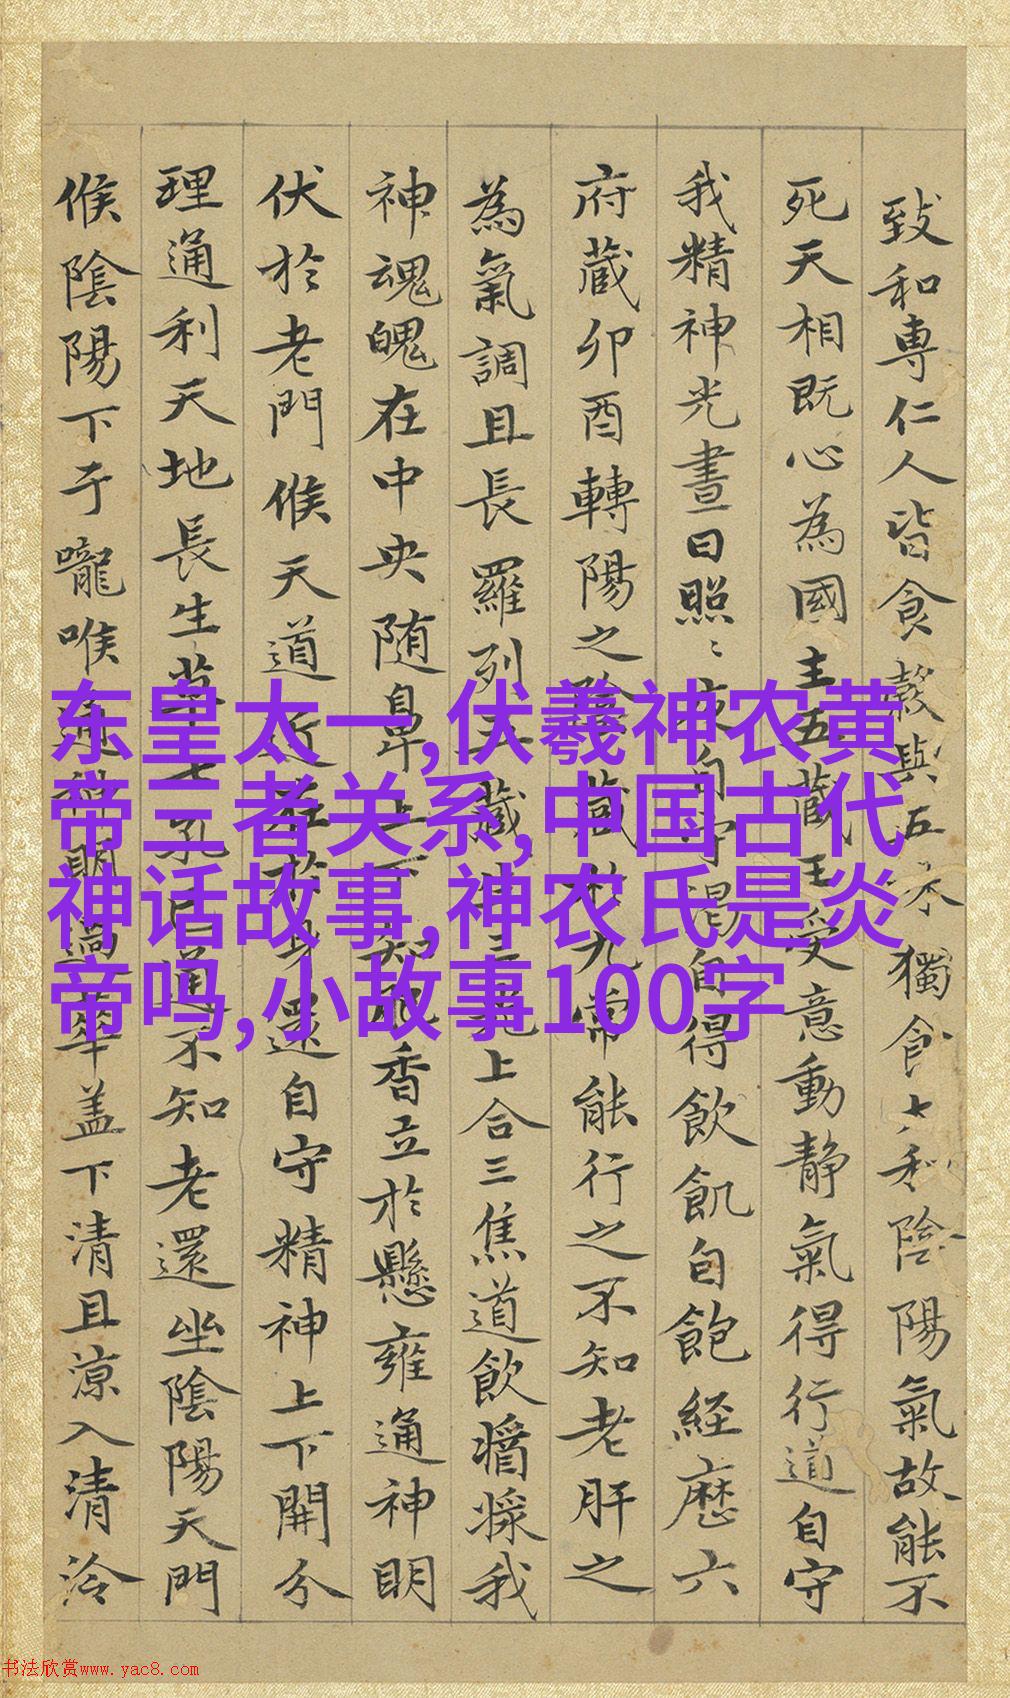 致和專仁人皆食穀與五味獨食大和陰陽氣故能不
死天相既心為國主五藏王受意動靜氣得行道自守
我精神光晝日照〻夜自守渴自得飲飢自飽經歷六
府藏卯酉轉陽之陰藏於九常能行之不知老肝之
為氣調且長羅列五藏主三光上合三焦道飲醬漿我
神魂魄在中央随鼻上下知肥香立於懸雍通神明
伏於老門候天道近在於身還自守精神上下開分
理通利天地長生草七孔已通不知老還坐陰陽天門
候陰陽下于嚨喉通神明過華蓋下清且凉入清泠
东皇太一,伏羲神农黄
帝三者关系,中国古代
神话故事,神农氏是炎
帝吗,小故事100字
书法欣赏www.yac8.com